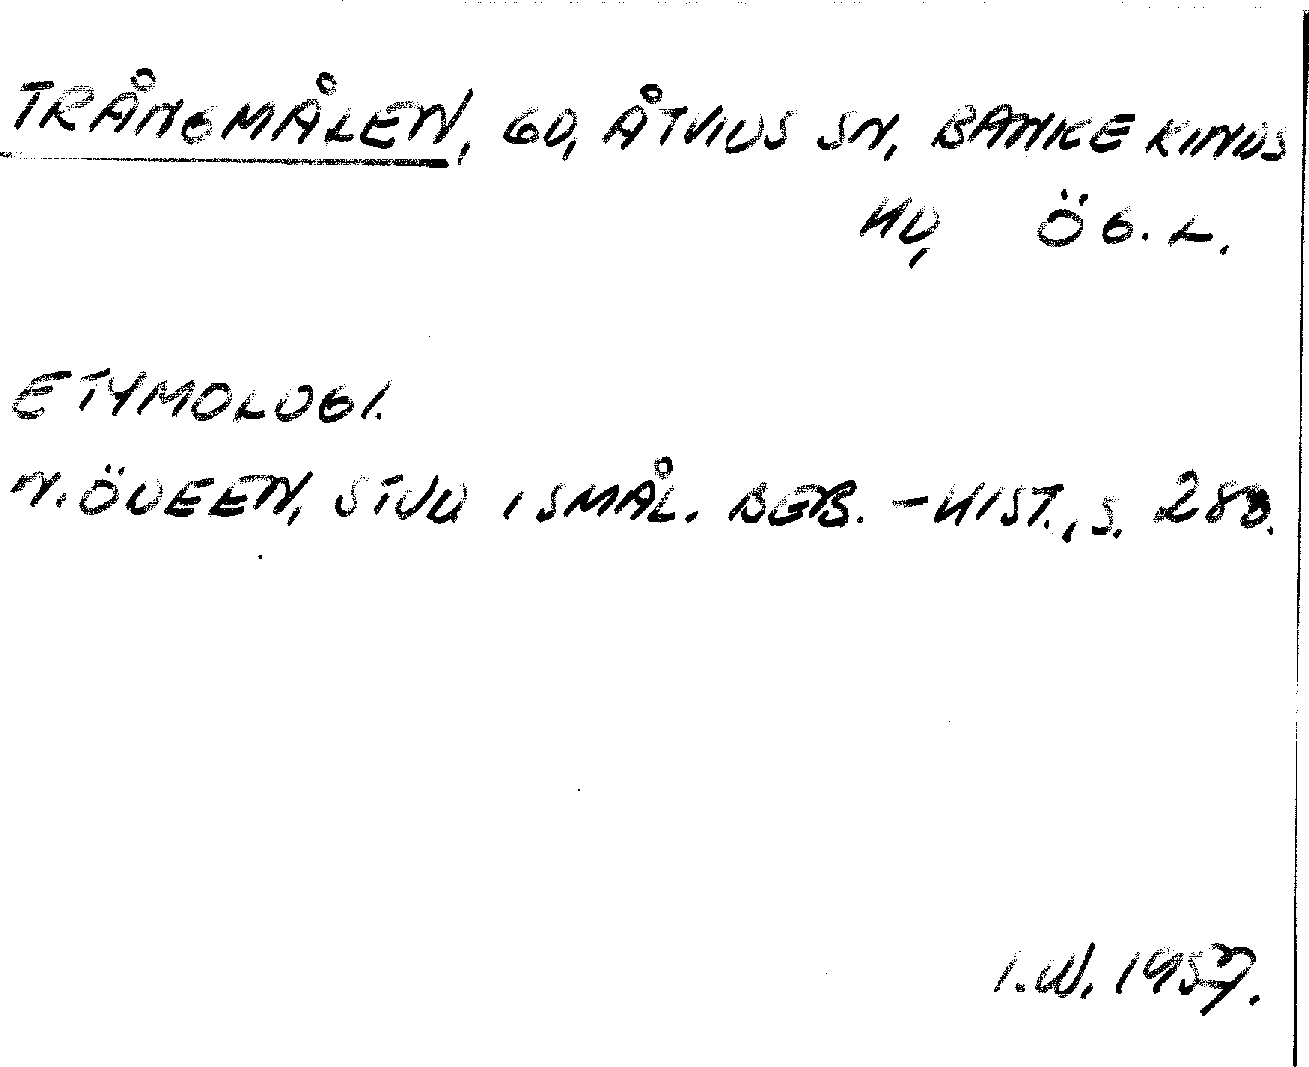 TRÅNGMÅLEN, GD, ÅTVIDS SN, BANKEKINDS
HD, ÖG. L.
ETYMOLOGI.
N. ÖDEEN, STUD I SMÅL. BEB. -HIST., S. 283.
I.W. 1957.